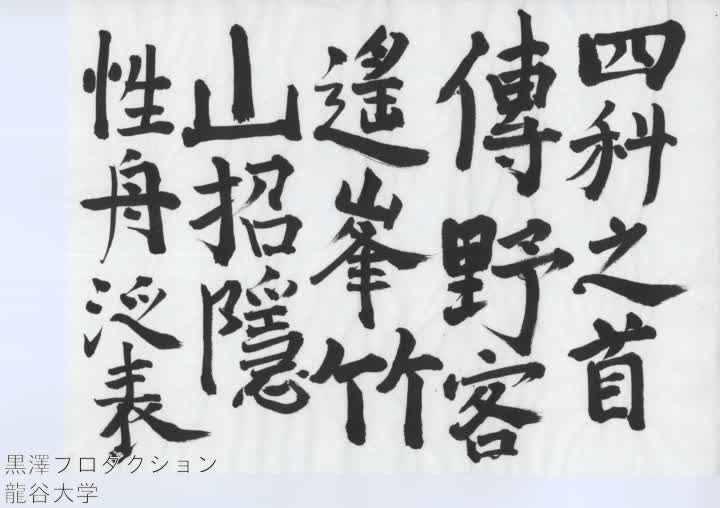 四科之首
傳野客
遙峯竹
山招隱
性舟泛表
黒澤プロダクション
龍谷大学